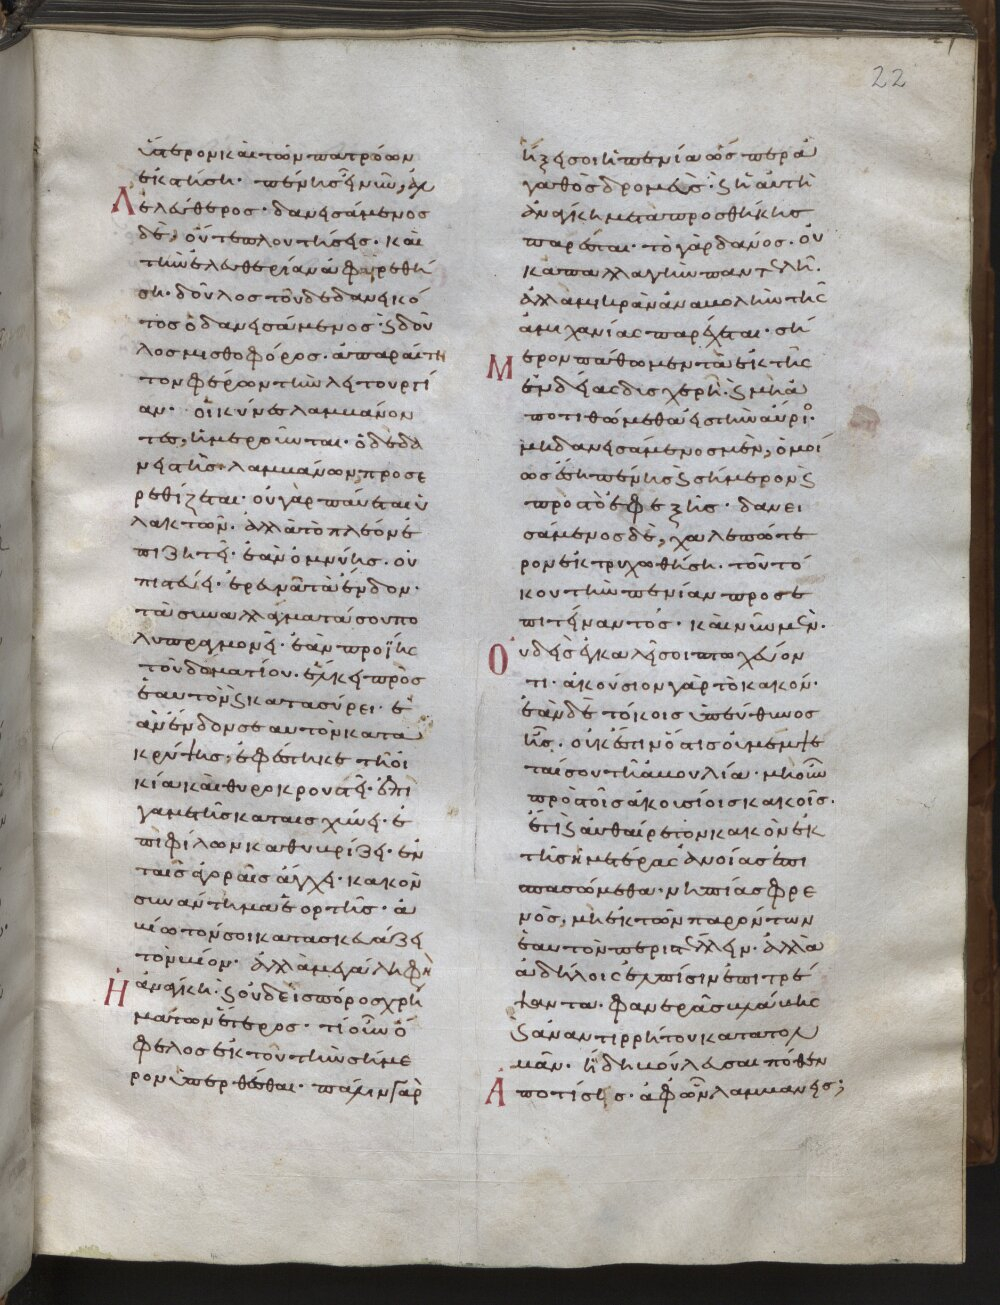 22
ὕστερον καὶ τῶν πατρώων
ἐκστήσῃ. πένης εἶ νῦν, ἀλλ
ἐλεύθερος. δανεισάμενος
δὲ, οὔτε πλουτήσεις. καὶ
τὴν ἐλευθερίαν ἀφαιρεθή
ση. δοῦλος τοῦ δεδανεικό
τος ὁ δανεισάμενος. ϗ δοῦ
λος μισθοφόρος. ἀπαραίτη
τον φέρων τὴν λειτουργί
αν. οἱ κύνες λαμβάνον
τες, ἡμεροῦνται. ὁ δὲ δα
νειστὴς λαμβάνων προσε
ρεθίζεται. οὐ γὰρ παύεται ὑ
λακτῶν. ἀλλὰ τὸ πλεῖον ἐ
πιζητεῖ. ἐὰν ὀμνύῃς. οὐ
πιστεύει. ἐρευνᾶ τὰ ἔνδον.
τὰ συναλλάγματά σου πο
λυπραγμονεῖ. ἐὰν προΐῃς
τοῦ δωματίου. ἕλκει πρὸς
ἑαυτὸν ϗ κατασύρει. ἐ
ὰν ἔνδον σεαυτὸν κατα
κρύψῃς, ἐφέστηκε τῆ οἰ
κία καὶ θυροκρουστεῖ. ἐπὶ
γαμετῆς καταισχύνει. ἐ
πὶ φίλων καθυβρίζει. ἐν
ταῖς ἀγοραῖς ἄγχει. κακὸν
συνάντημα ἑορτῆς. ἀ
βίωτόν σοι κατασκευάζει
τὸν βίον. ἀλλὰ μεγάλη φη
ἀνάγκη. ϗ οὐδεὶς πόρος χρη
μάτων ἕτερος. τί οὖν ὄ
φελος ἐκ τοῦ τὴν σήμε
ρον ὑπερθέσθαι. πάλιν γὰρ
ἥξει σοι ἡ πενία ὥσπερ ἀ
γαθὸς δρομεύς. ϗ ἡ αὐτὴ
ἀνάγκη μετὰ προσθήκης
παρέσται. τὸ γὰρ δάνος. οὐ
κ ἀπαλλαγὴν παντελῆ.
ἀλλὰ μικρὰν ἀναβολὴν τῆς
ἀμηχανίας παρέχεται. σή
μερον πάθωμεν τὰ ἐκ τῆς
ἐνδείας δυσχερῆ. ϗ μὴ ἀ
ποτιθώμεθα εἰς τὴν αὔριον.
μὴ δανεισάμενος μὲν, ὁμοί
ως ἔση πένης ϗ σήμερον ϗ
πρὸς τὸ ἐφεξῆς. δανει
σάμενος δὲ, χαλεπώτε
ρον ἐκτρυχωθήση. τοῦ τό
κου τὴν πενίαν προσε
πιτείναντος. καὶ νῦν μὲν.
οὐδεὶς ἐγκαλεῖ σοι πτωχεύον
τι. ἀκούσιον γὰρ τὸ κακόν.
ἐὰν δὲ τόκοις ὑπεύθυνος
ἧς. οὐκ ἔστιν ὅστις οὐ μέμψε
ταί σου τῆ ἀβουλία. μὴ οὖν
πρὸς τοῖς ἀκουσίοις κακοῖς.
ἔτι ϗ αὐθαίρετον κακὸν ἐκ
τῆς ἡμετέρας ἀνοίας ἐπι
σπασώμεθα. νηπίας φρε
νὸς, μὴ ἐκ τῶν παρόντων
ἑαυτὸν περιστέλλειν. ἀλλὰ
ἀδήλοις ἐλπίσιν ἐπιτρέ
ψαντα. φανερᾶς βλάβης
ϗ ἀναντιρρήτου κατατολ
μᾶν. ἤδη βούλευσαι πόθεν
ἀποτίσεις. ἀφ᾽ ὧν λαμβάνεις;